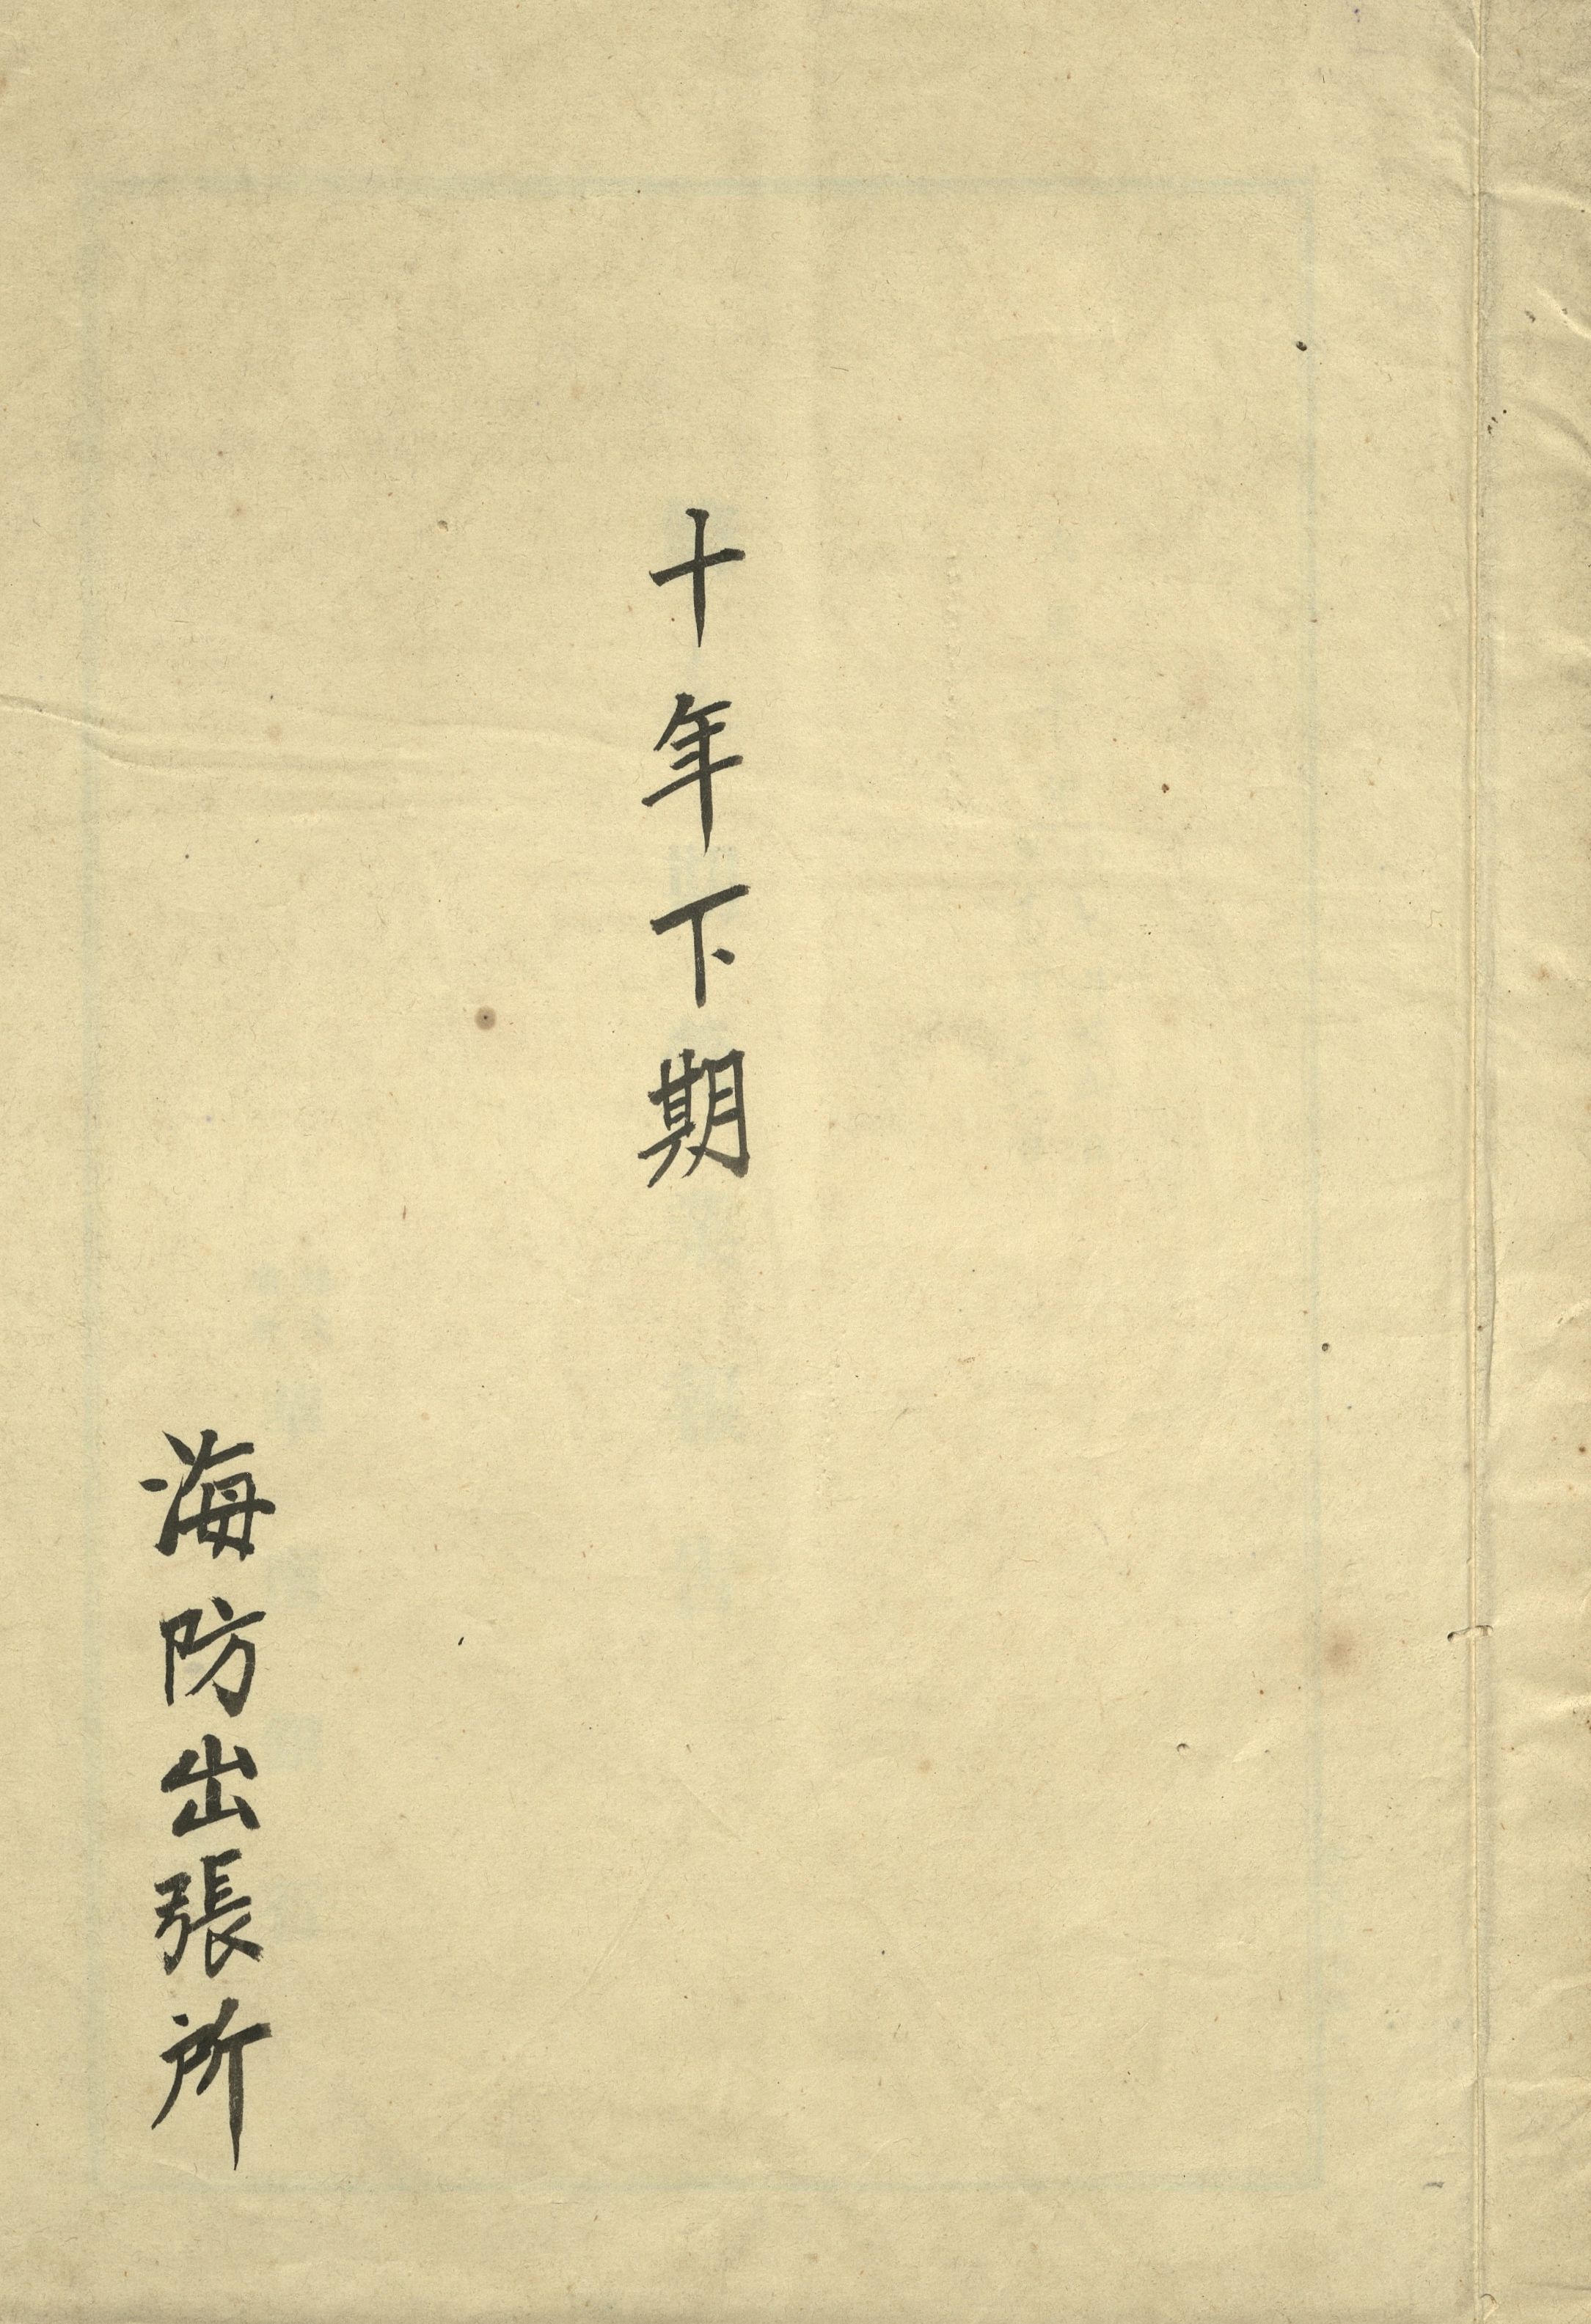 十年下期
海防出張所